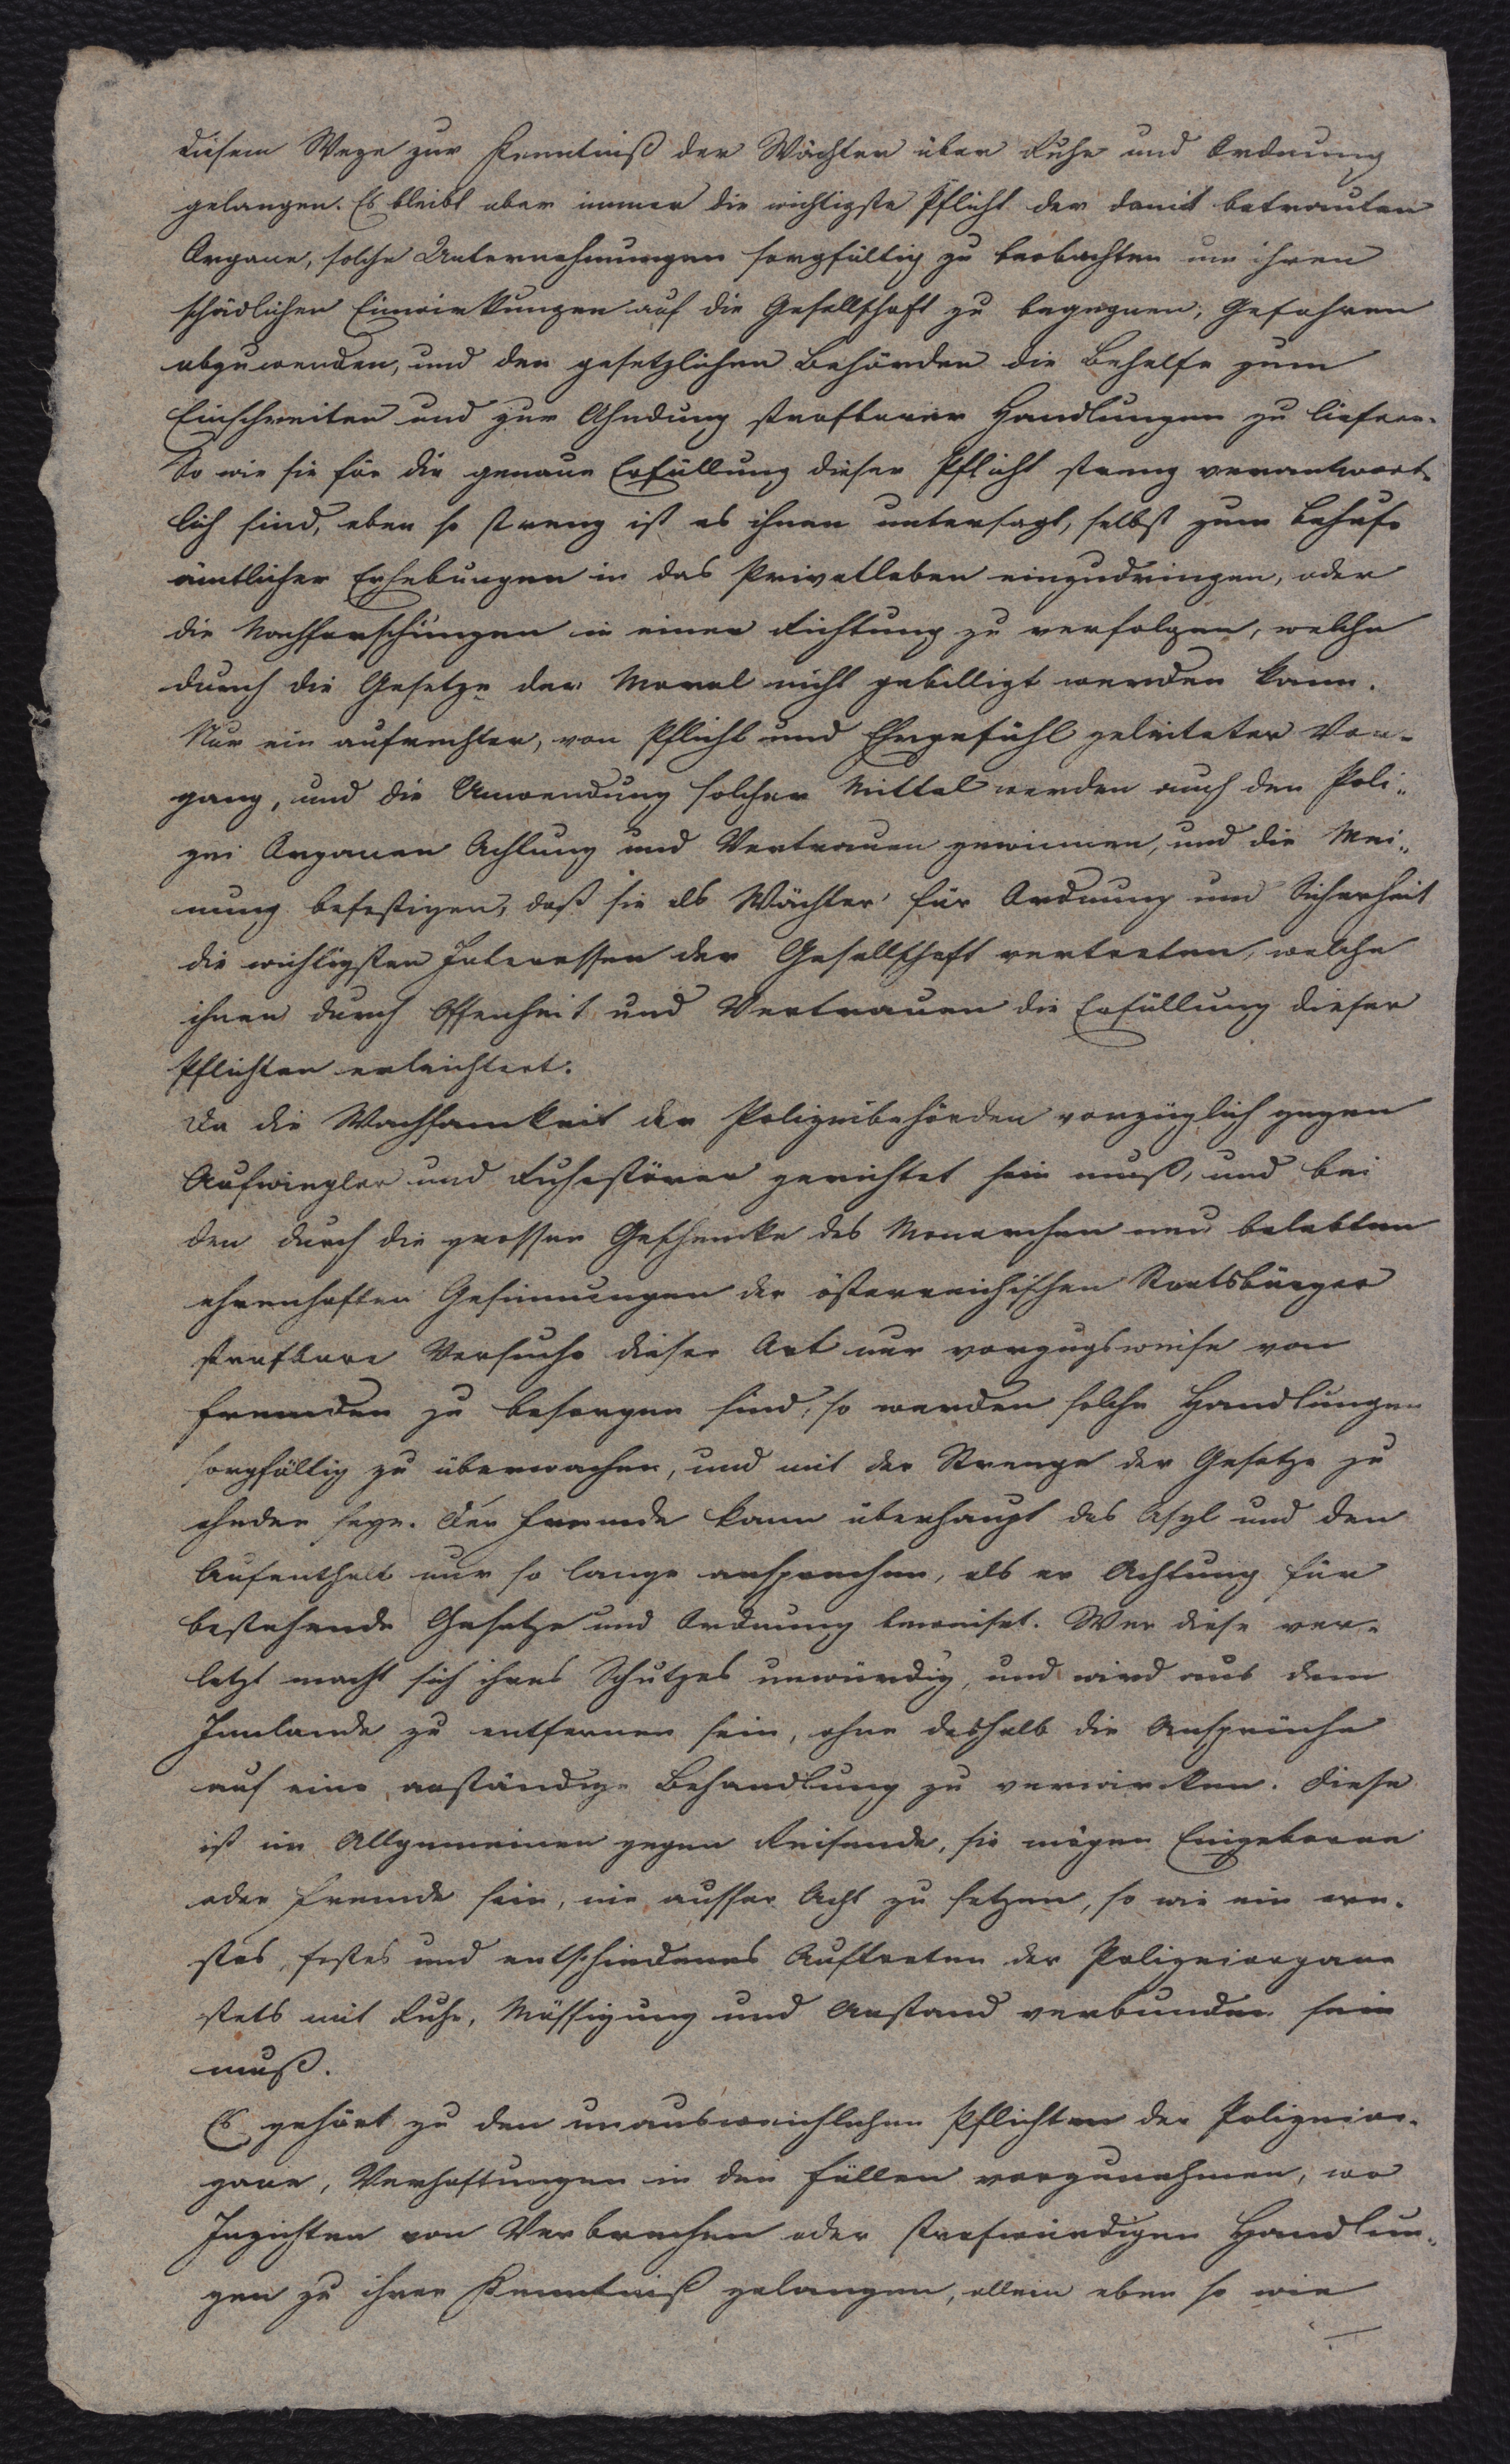 diesem Wege zur Kenntniß der Wächter über Ruhe und Ordnung
gelangen. Es bleibt aber immer die wichtigste Pflicht der damit betrauten
Organe, solche Unternehmungen sorgfältig zu beobachten um ihren
schädlichen Einwirkungen auf die Gesellschaft zu begegnen, Gefahren
abzuwenden, und den gesetzlichen Behörden die Behelfe zum
Einschreiten und zur Ahndung strafbarer Handlungen zu liefern.
So wie sie für die genaue Erfüllung dieser Pflicht streng verantwort-
lich sind, eben so streng ist es ihnen untersagt, selbst zum Behufe
ämtlicher Erhebungen in das Privatleben einzudringen, oder
die Nachforschungen in einer Richtung zu verfolgen, welche
durch die Gesetze der Moral nicht gebilligt werden kann.
Nur ein aufrechter, von Pflicht und Ehrgefühl geleiteter Vor-
gang, und die Anwendung solcher Mittel werden auch den Poli-
zei Organen Achtung und Vertrauen gewinnen, und die Mei-
nung befestigen, daß sie als Wächter für Ordnung und Sicherheit
die wichtigsten Interessen der Gesellschaft vertreten, welche
ihnen durch Offenheit und Vertrauen die Erfüllung dieser
Pflichten erleichtert.
Da die Wachsamkeit der Polizeibehörden vorzüglich gegen
Aufwiegler und Ruhestörer gerichtet sein muß, und bei
den durch die grossen Geschencke des Monarchen neu belebten
ehrenhaften Gesinnungen der österreichischen Staatsbürger
strafbare Versuche dieser Art nur vorzugsweise von
Fremden zu besorgen sind, so werden solche Handlungen
sorgfältig zu überwachen, und mit der Strenge der Gesetze zu
ahnden seyn. Der Fremde kann überhaupt das Asyl und den
Aufenthalt nur so lange ansprechen, als er Achtung für
bestehende Gesetze und Ordnung beweiset. Wer diese ver-
letzt macht sich ihres Schutzes unwürdig, und wird aus dem
Innlande zu entfernen sein, ohne deshalb die Ansprüche
auf eine anständige Behandlung zu verwirken. Diese
ist im Allgemeinen gegen Reisende, sie mögen Eingeborne
oder Fremde sein, nie ausser Acht zu setzen, so wie ein ern-
stes, festes und entschiedenes Auftreten der Polizeiorgane
stets mit Ruhe, Mässigung und Anstand verbunden sein
muß.
Es gehört zu den unausweichlichen Pflichten der Polizeior-
gane, Verhaftungen in den Fällen vorzunehmen, wo
Inzichten von Verbrechen oder strafwürdigen Handlun-
gen zu ihrer Kenntniß gelangen, allein eben so wie